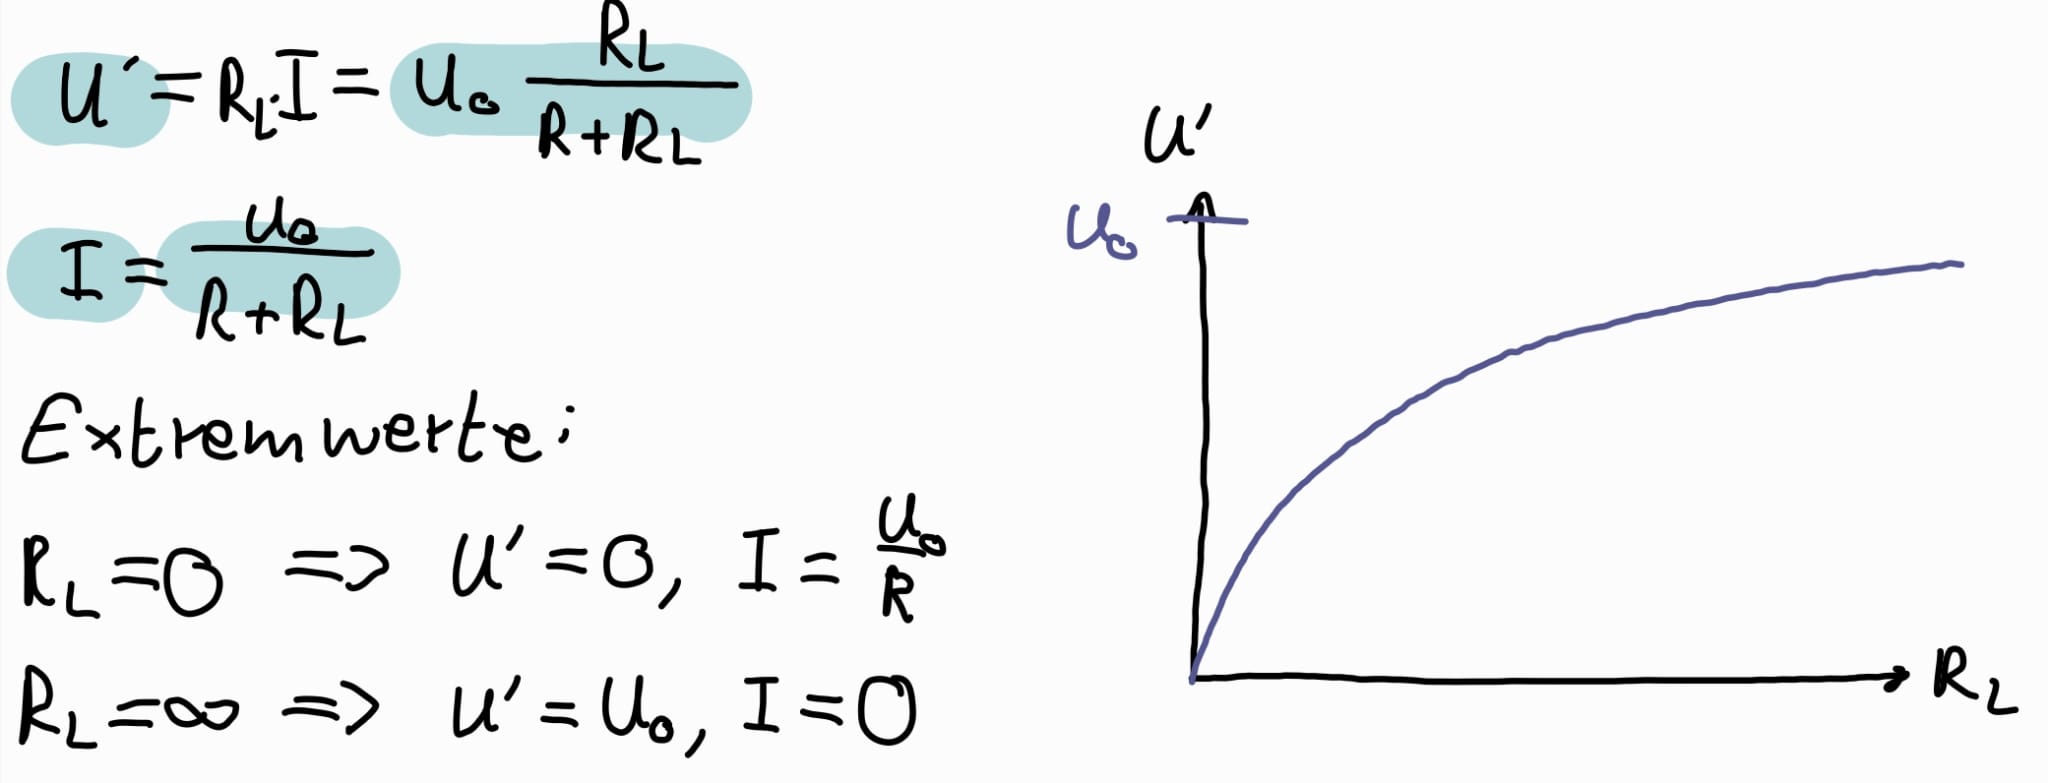 U´ = R_L · I = U₀ R_L / (R + R_L)
I = U₀ / (R + R_L)
Extremwerte:
R_L = 0 => U' = 0, I = U₀ / R
R_L = ∞ => U' = U₀, I = 0
U'
U₀
R_L